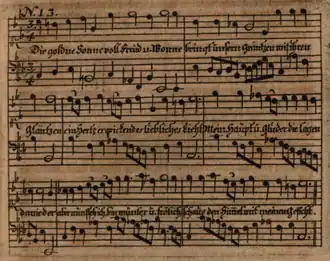 N. 13.
Die goldne Sonne voll Freud u. Wonne bringt unsern Gräntzen mit ihren
Gläntzen ein Hertz erqvickendes liebliches Licht. Mein Haupt u. Glieder die lagen
nieder aber nun steh ich bin munter u. frölich schaue den Himel mit meinem gesicht.